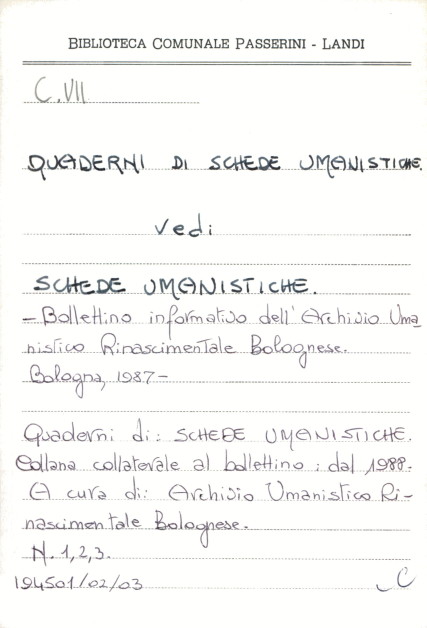 BIBLIOTECA COMUNALE PASSERINI - LANDI
C.VII
QUADERNI DI SCHEDE UMANISTICHE.
vedi
SCHEDE UMANISTICHE.
- Bollettino informativo dell'Archivio Uma
nistico Rinascimentale Bolognese.
Bologna, 1987-
Quaderni di: SCHEDE UMANISTICHE.
Collana collaterale al bollettino: dal 1988-
A cura di: Archivio Umanistico Ri-
nascimentale Bolognese.
N. 1,2,3.
194501/02/03
C